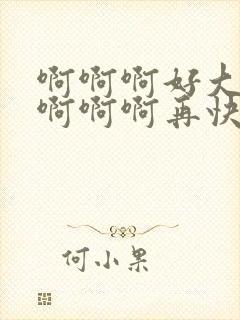 啊啊啊好大
啊啊啊再快
何小果